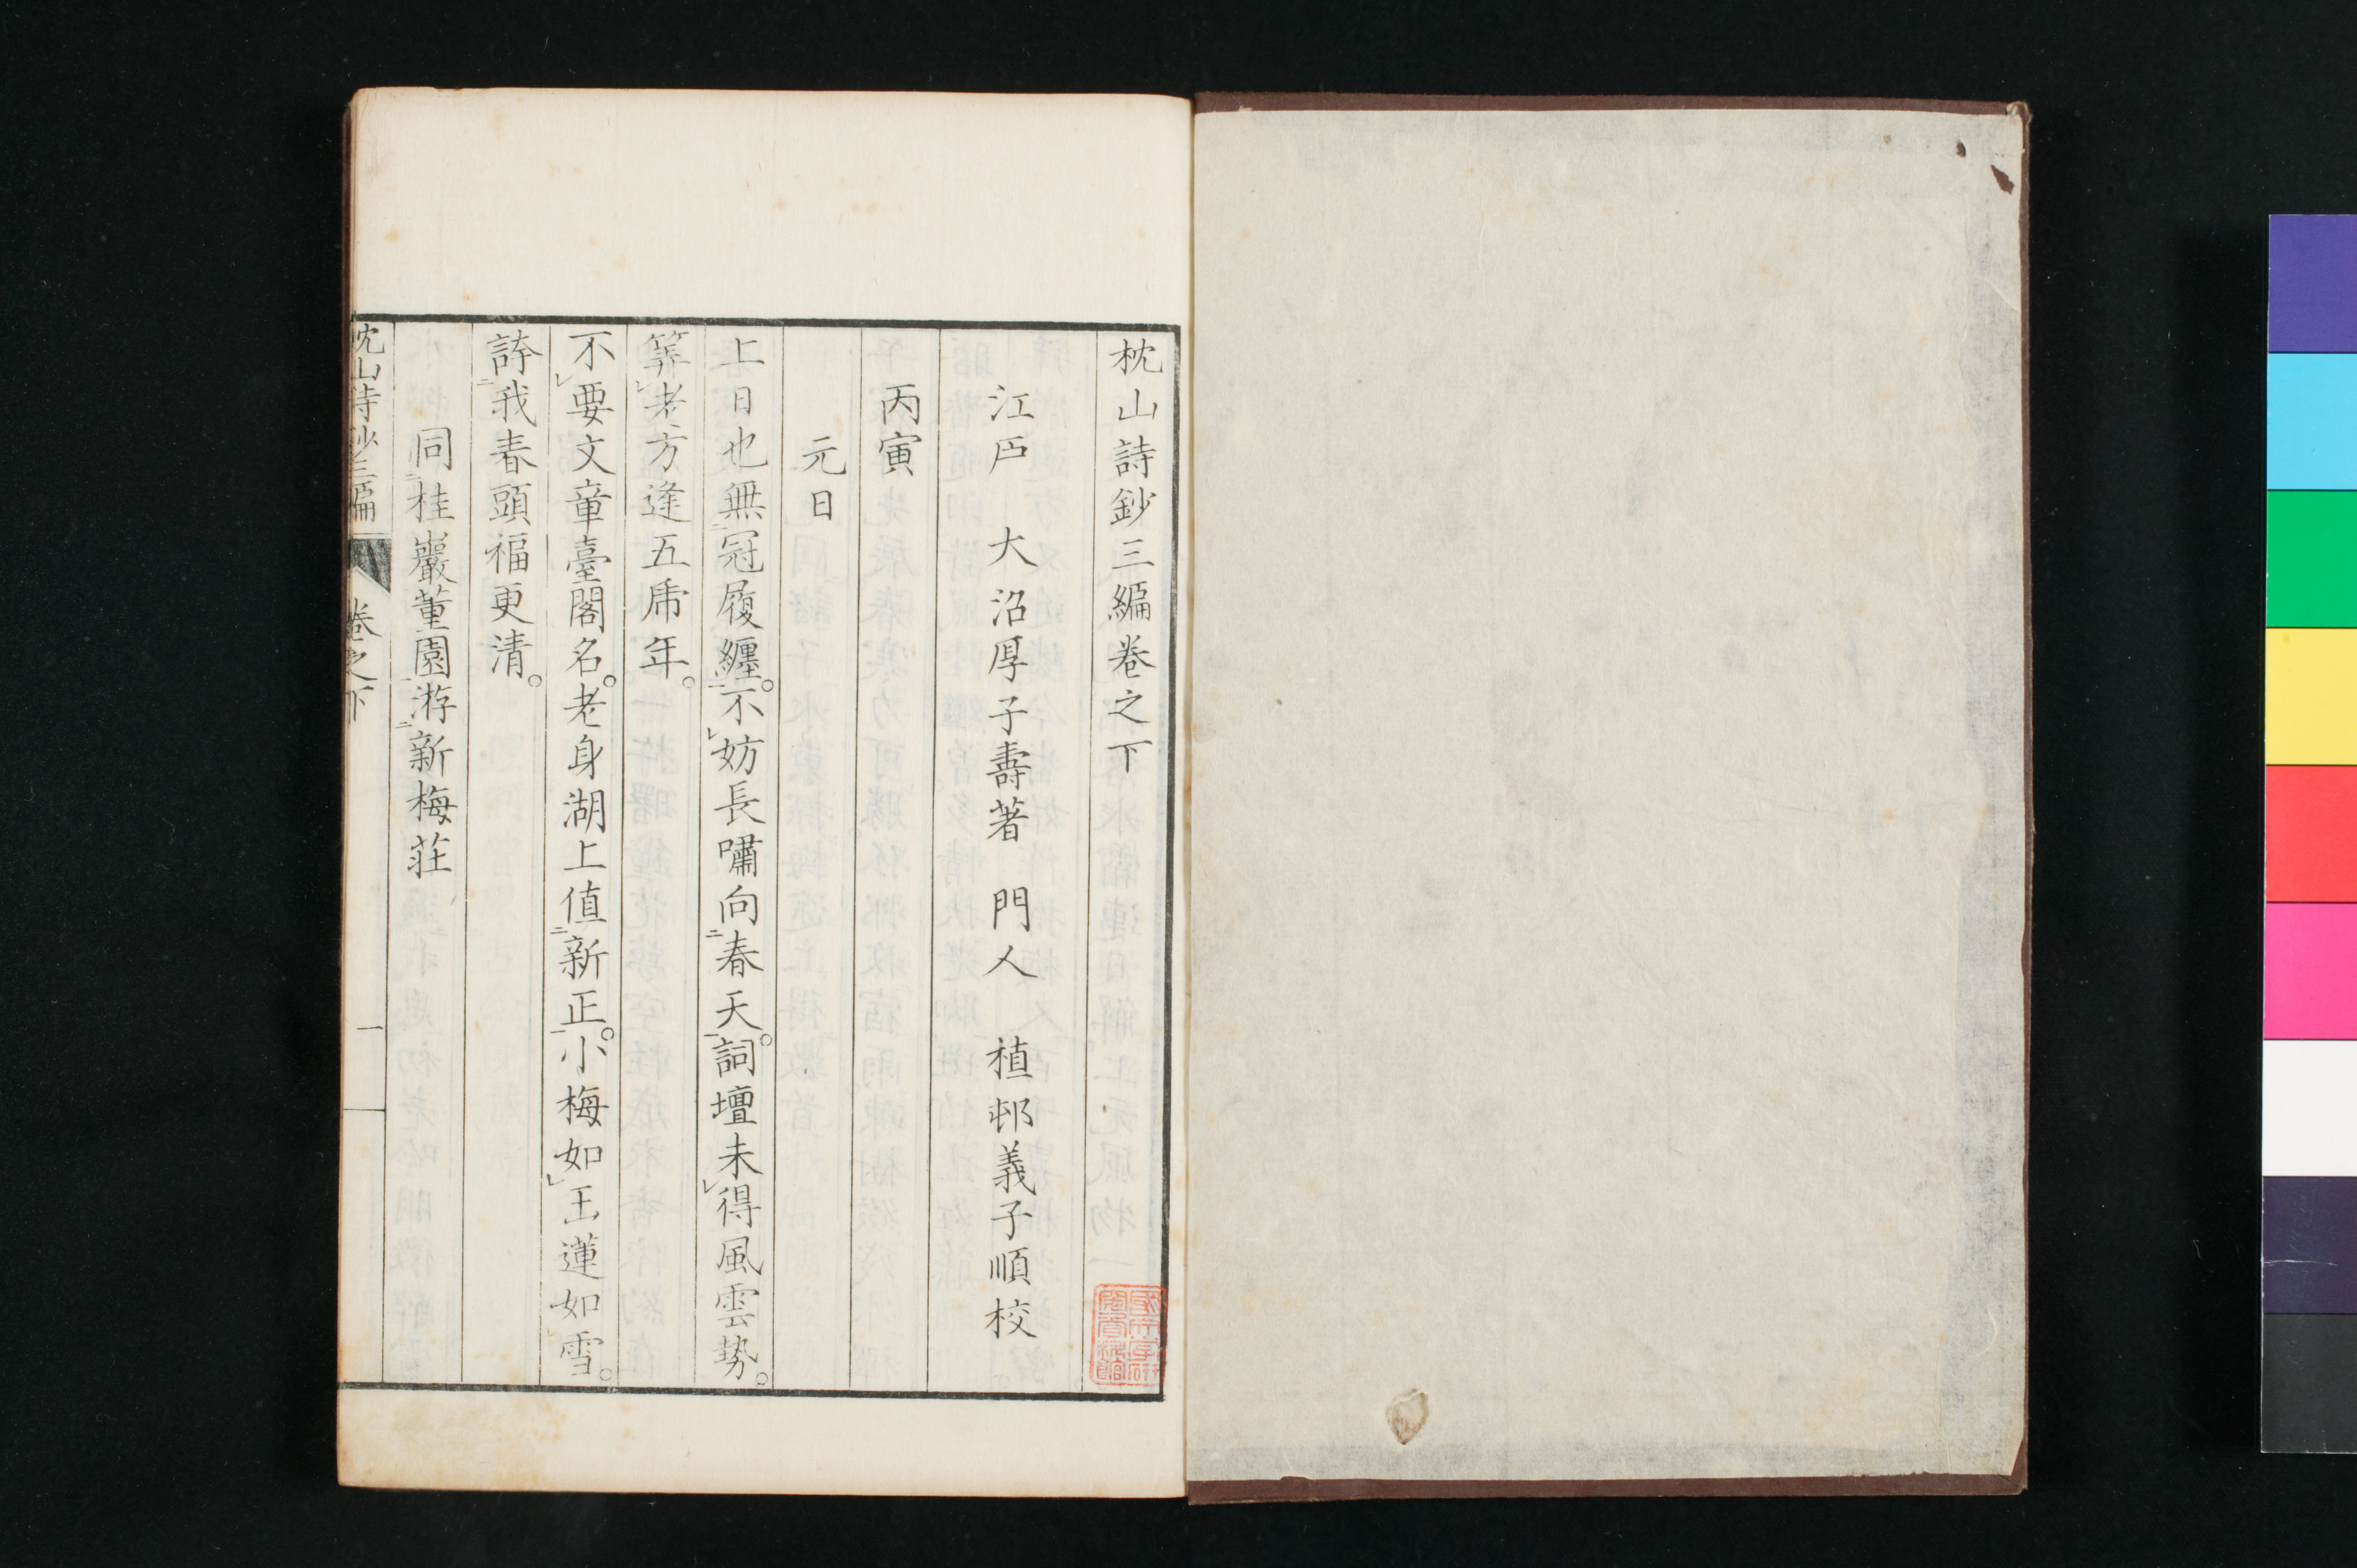 枕山詩鈔三編卷之下
江戶　大沼厚子壽著　門人　植邨義子順校
丙寅
元日
上日也無冠履纏。不妨長嘯向春天。詞壇未得風雲勢。
筭老方逢五乕年。
不要文章臺閣名。老身湖上值新正。小梅如玉蓮如雪。
誇我春頭福更清。
同桂巖董園游新梅莊
枕山詩鈔三編　卷之下　一